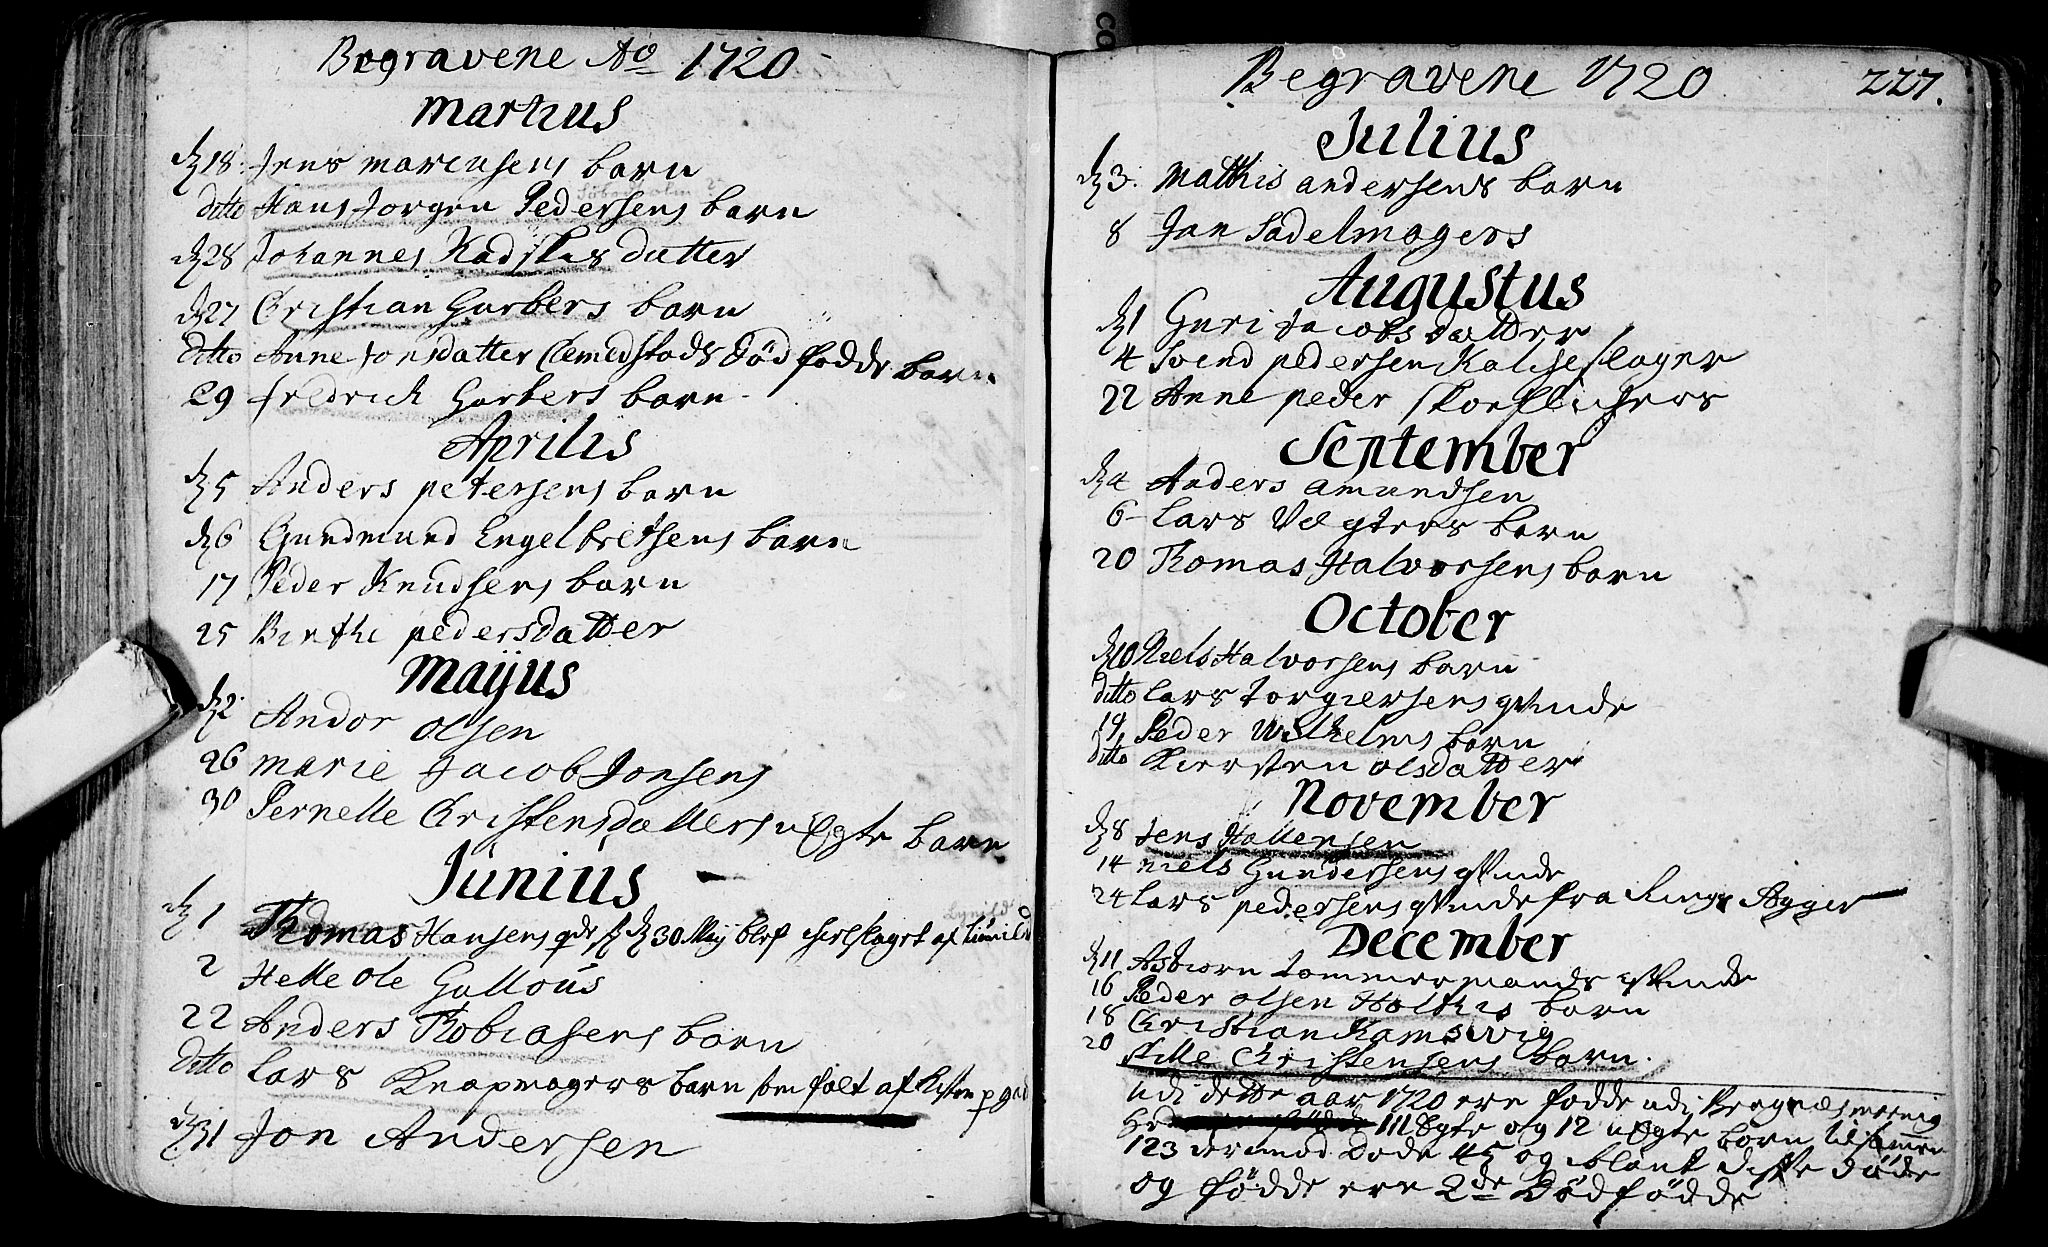 Begravene Ao 1720
Martius
d 18. Jens Morensens barn
ditto Hans Jorgen Pedersens barn
d 28 Johannes Kadskes datter
d 27 Cristian Garbers barn
ditto Anne Jonsdatter Clemedstads død fødde barn
29 fredrich Garbers barn
Aprilis
d 5 Anders petersens barn
d 6 Gundmund Engelbretsens barn
17 Peder Knudsens barn
25 Birthe pedersdatter
Maijus
d 2 Andor olsen
26 marie Jacob Jonsens
30 Pernelle Cristensdatters uEgte barn
Junius
d 1 Thomas Hansens d 30 Maij blef ihielslaget af
2 Helle ole Gallous
22 Anders Tobiasens barn
ditto Lars Knapmagers barn som falt af
d 31 Jon Andersen
Begravene 1720 227.
Julius
d 3. Matthis andersens barn
8 Jan Sadelmagers
Augustus
d 1 Guri Jacobs datter
4 Svend pedersen Kalcheslager
22 Anne peder skoeflichers
September
d 4 Anders amundsen
6 Lars Vegters barn
20 Thomas Halvorsens barn
October
d 10 Niels Halvorsens barn
ditto Lars torgiersens qvinde
19 Peder Wilhelms barn
ditto Kiersten olsdatter
November
d 8 Jens Hallensen
14 niels Gundersens qvinde
24 Lars pedersens qvinde fra Ringe Agger
December
d 11 Asbiorn tommermands qvinde
16 Peder olsen Holthis barn
18 Christian Ramsvig
20 Pelle Christensens barn.
udi dette aar 1720 ere fødde udi
111 Egte og 12 uEgte børn tilsammen
123 derimod døde 45 og iblant disse døde
og fødde ere 2de Dødfødde